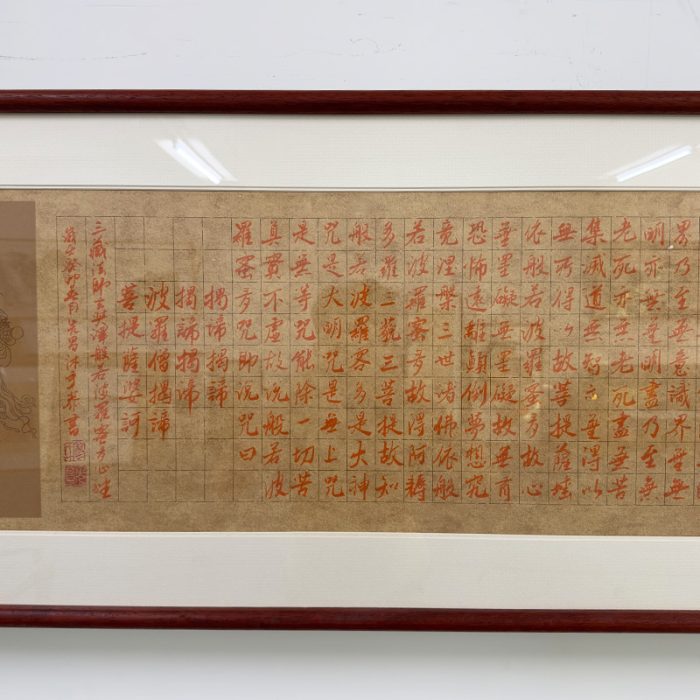 界乃至無意識界無無
明亦無無明盡乃至無
老死亦無老死盡無苦
集滅道無智亦無得以
無所得々故菩提薩埵
依般若波羅蜜多故心
無罣礙無罣礙故無有
恐怖遠離顛倒夢想究
竟涅槃三世諸佛依般
若波羅蜜多故得阿耨
多羅三藐三菩提故知
般若波羅蜜多是大神
咒是大明咒是無上咒
是無等咒能除一切苦
真實不虛故說般若波
羅蜜多咒即說咒曰
揭諦揭諦
揭諦揭諦
波羅僧揭諦
菩提薩婆訶
三藏法師玄奘譯般若波羅蜜多心經
癸卯 沐手恭書